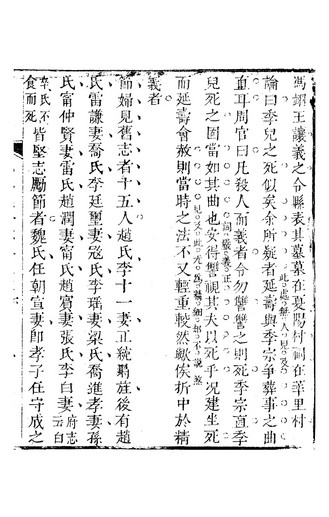 馮翊王讓義之令縣表其墓墓在夏陽村祠在華里村
論曰季兒之死似矣余所疑者延壽與季宗爭葬事之曲
直耳周官曰凡殺人而義者令勿讐讐之則死季宗直季
兒死之固當如其曲也安得讐視其夫以死乎況建生死
而延壽會赦則當時之法不又輕重較然歟俟折中於精
義者
節婦見舊志者十五人趙氏李十一妻正統羇旌後有趙
氏雷謙妻喬氏李廷璽妻寇氏李瑤妻梁氏喬進孝妻孫
氏甯仲賢妻雷氏趙潤妻甯氏趙賓妻張氏李白妻府志云白
辛氏不食而死皆堅志勵節者魏氏任朝宣妻卽孝子任守成之